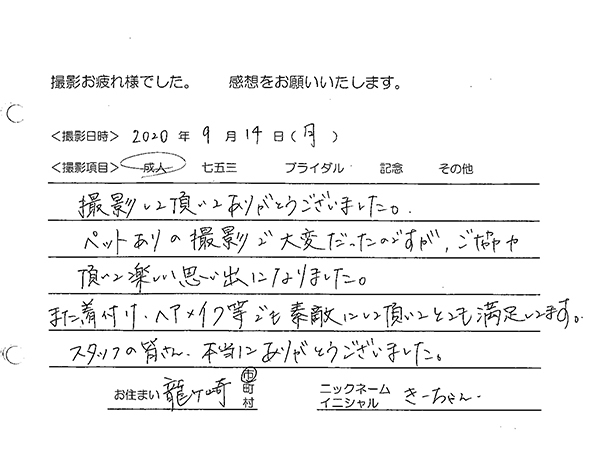 撮影お疲れ様でした。 感想をお願いいたします。
<撮影日時> 2020 年 9 月 14 日 (月)
<撮影項目> 成人 七五三 ブライダル 記念 その他
撮影して頂いてありがとうございました。
ペットありの撮影で大変だったのですが、
頂いて楽しい思い出になりました。
また着付け、ヘアメイク等でも素敵にして頂いてとても満足してます。
スタッフの皆さん、本当にありがとうございました。
お住まい 龍ヶ崎 市 町 村
ニックネーム イニシャル きーちゃん。